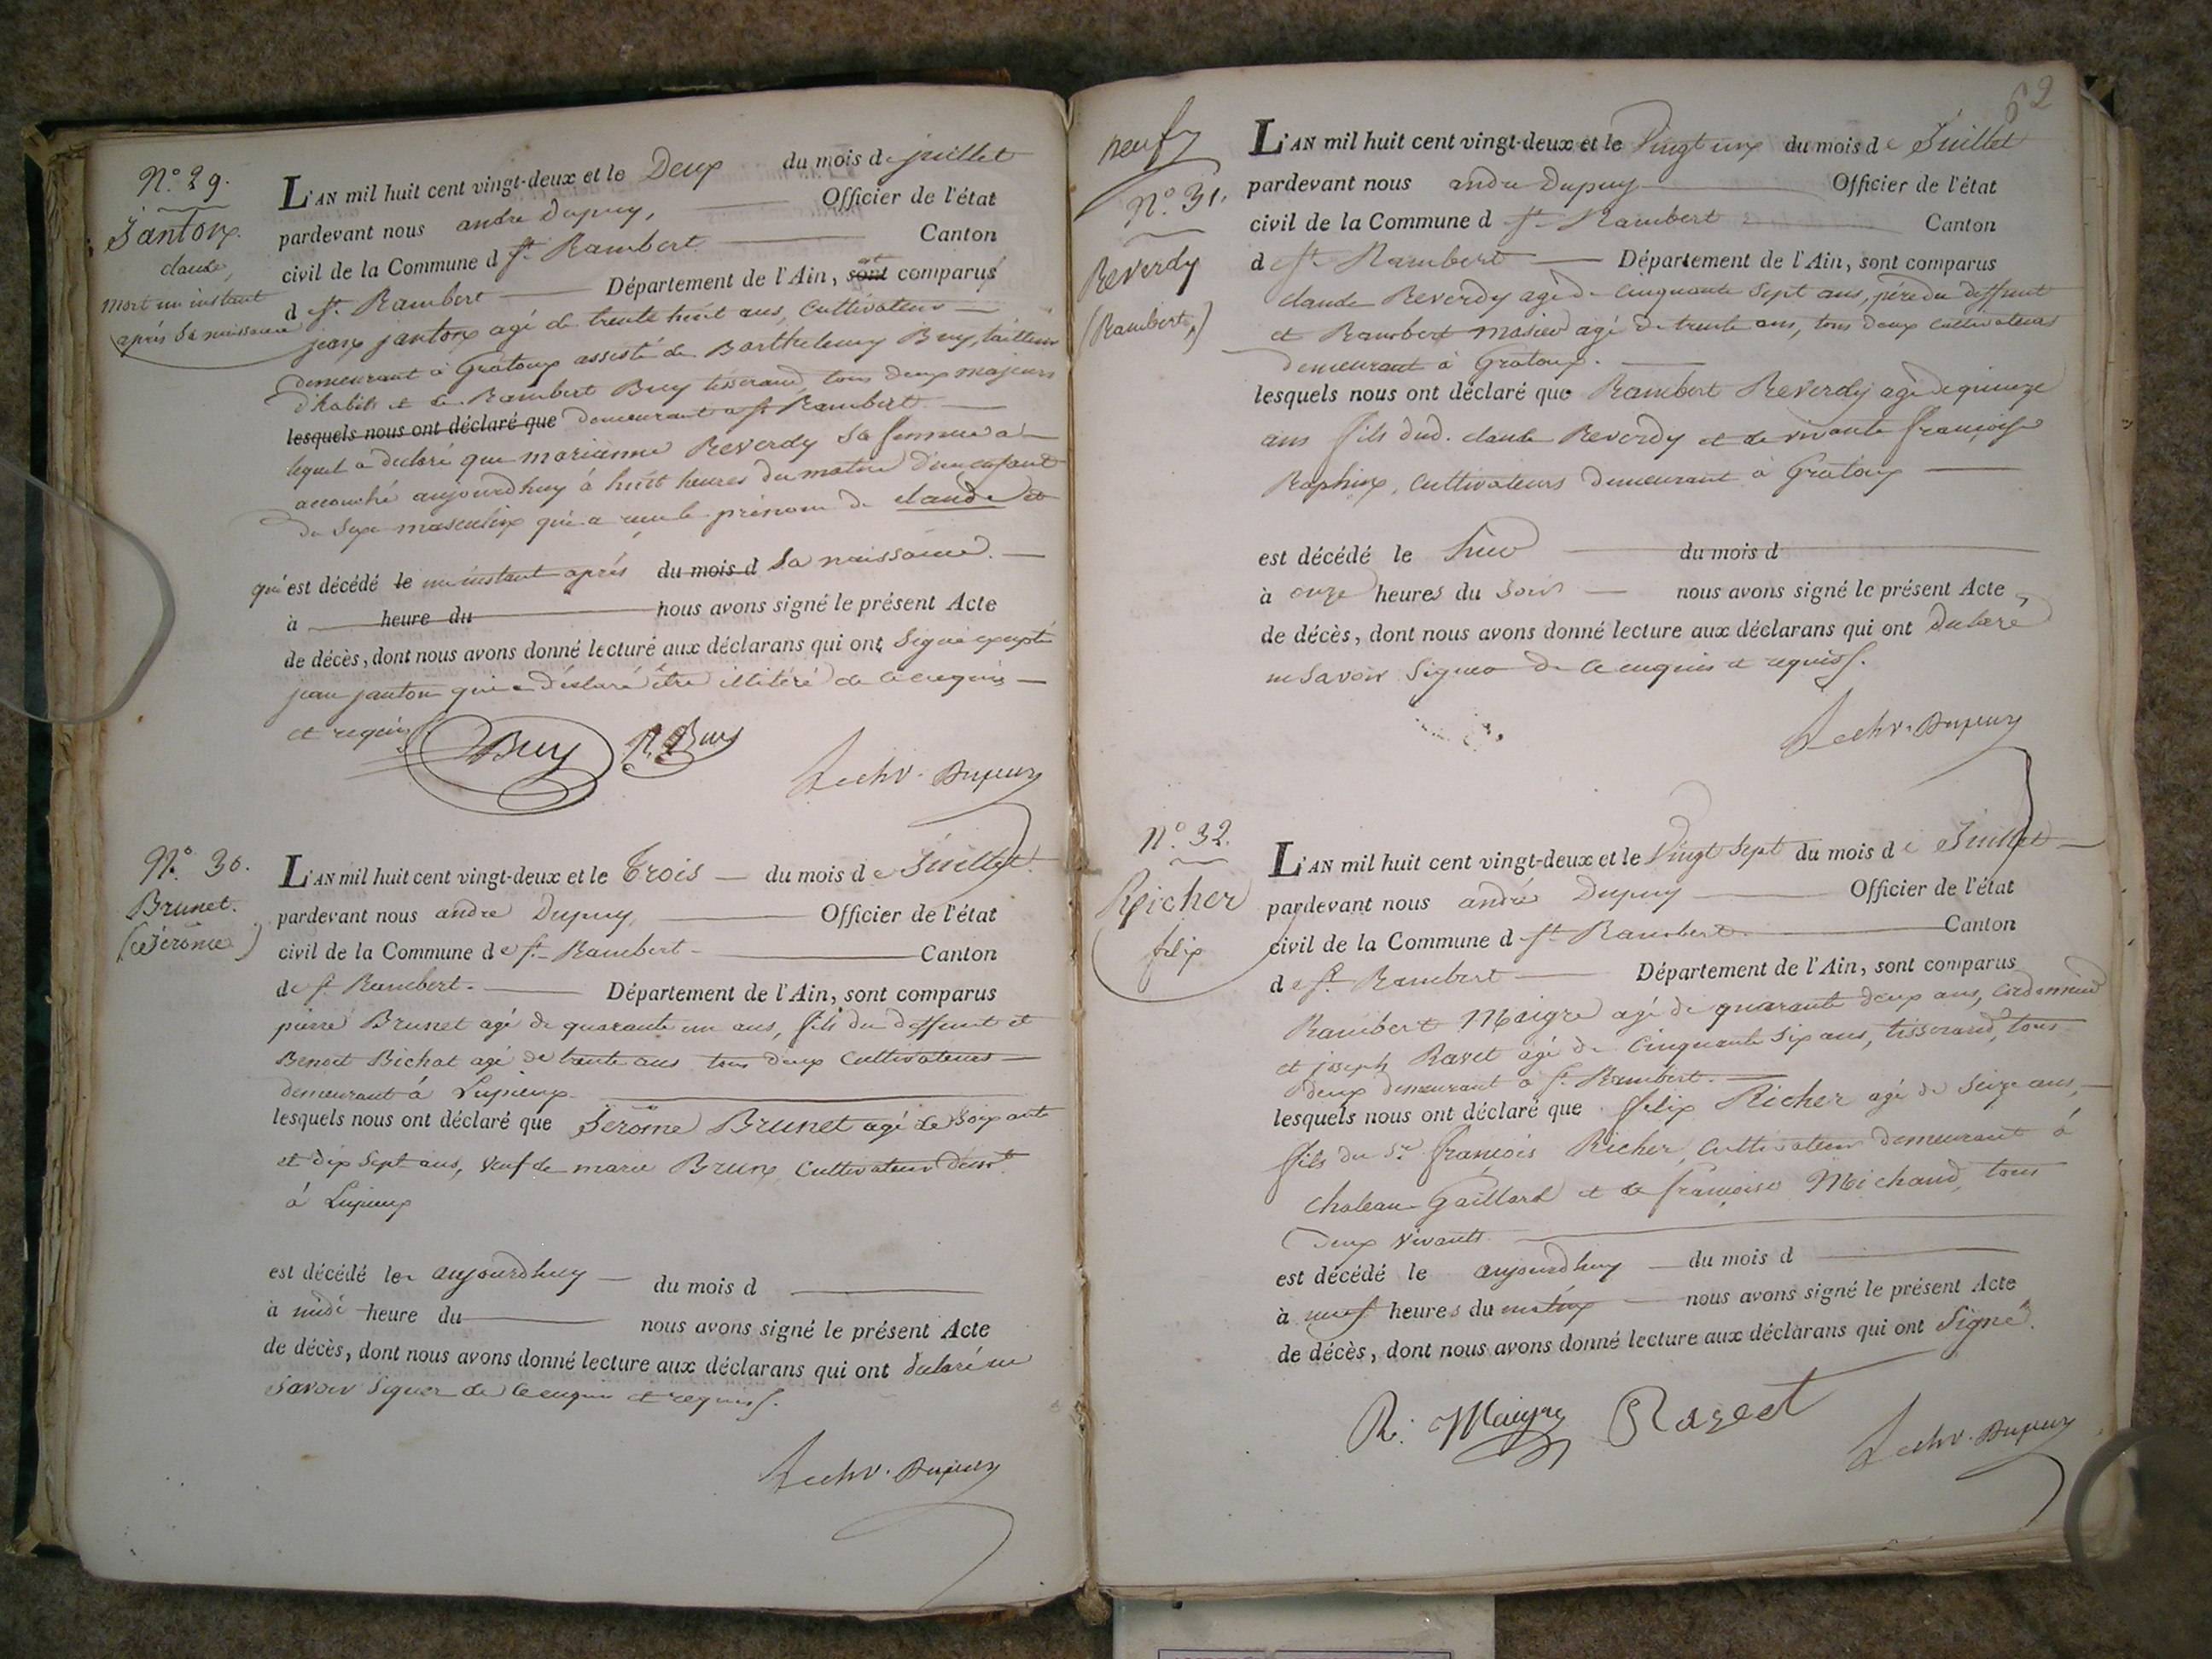 N.° 29.
Janton
claude,
mort un instant
après sa naissance
L'AN mil huit cent vingt-deux et le Deux du mois de juillet
pardevant nous andre Dupuy, Officier de l'état
civil de la Commune d St. Rambert Canton
d St. Rambert Département de l'Ain, sont comparus
jean janton agé de trente huit ans, cultivateur
demeurant à Gratoux assisté de Barthelemy Buy, tailleur
d'habits et de Rambert Buy tisserand, tous deux majeurs
lesquels nous ont déclaré que demeurant a St. Rambert
lequel a declaré que marianne Reverdy sa femme a
accouché aujourdhuy à huit heures du matin d'un enfant
du sexe masculin qui a reçu le prénom de claude et
qui est décédé le un instant après du mois d sa naissance.
à heure du nous avons signé le présent Acte
de décès, dont nous avons donné lecture aux déclarans qui ont signé excepté
jean janton qui a déclaré être illitéré de ce enquis
et requis
Buy R. Buy
Dupuy
N.° 30.
Brunet.
(Jérôme)
L'AN mil huit cent vingt-deux et le Trois du mois de Juillet.
pardevant nous andré Dupuy, Officier de l'état
civil de la Commune de St. Rambert Canton
de St. Rambert. Département de l'Ain, sont comparus
pierre Brunet agé de quarante un ans, fils du deffunt et
Benoit Bichat agé de trente ans tous deux cultivateurs
demeurant à Lupieux
lesquels nous ont déclaré que Jerôme Brunet agé de soixante
et dix sept ans, veuf de marie Brun, cultivateur demt.
à Lupieux
est décédé le aujourdhuy du mois d
à midi heure du nous avons signé le présent Acte
de décès, dont nous avons donné lecture aux déclarans qui ont declaré ne
savoir signer de ce enquis et requis.
Dupuy
62
neuf
N.° 31.
Reverdy
(Rambert)
L'AN mil huit cent vingt-deux et le Vingt un du mois de Juillet
pardevant nous andre Dupuy Officier de l'état
civil de la Commune d St. Rambert Canton
d St. Rambert Département de l'Ain, sont comparus
claude Reverdy agé de cinquante sept ans, père du deffunt
et Rambert agé de trente ans, tous deux cultivateurs
demeurant à Gratoux.
lesquels nous ont déclaré que Rambert Reverdy agé de quinze
ans fils dud. claude Reverdy et de vivante françoise
Raphin, cultivateurs demeurant à Gratoux
est décédé le hier du mois d
à onze heures du soir nous avons signé le présent Acte
de décès, dont nous avons donné lecture aux déclarans qui ont declaré
ne savoir signer de ce enquis et requis.
Dupuy
N.° 32.
Richer
felix
L'AN mil huit cent vingt-deux et le Vingt sept du mois de Juillet
pardevant nous andré Dupuy Officier de l'état
civil de la Commune d St. Rambert Canton
de St. Rambert Département de l'Ain, sont comparus
Rambert Maigre agé de quarante deux ans, cordonnier
et joseph Ravet agé de cinquante six ans, tisserand, tous
deux demeurant à St. Rambert.
lesquels nous ont déclaré que felix Richer agé de seize ans,
fils du Sr. françois Richer, cultivateur demeurant à
chateau Gaillard et de françoise Michaud, tous
deux vivants
est décédé le aujourdhuy du mois d
à neuf heures du matin nous avons signé le présent Acte
de décès, dont nous avons donné lecture aux déclarans qui ont signé.
R. Maigre
Dupuy